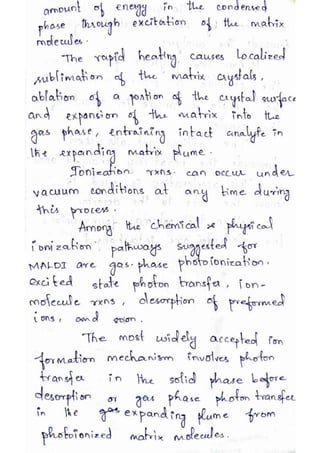 amount of energy in the condensed
phase through excitation of the matrix
molecules.
The rapid heating causes localized
sublimation of the matrix crystals,
ablation of a portion of the crystal surface
and expansion of the matrix into the
gas phase, entraining intact analyte in
the expanding matrix plume.
Ionization rxns. can occur under
vacuum conditions at any time during
this process.
Among the chemical & physical
ionization pathways suggested for
MALDI are gas-phase photoionization.
excited state photon transfer, ion-
molecule rxns, desorption of preformed
ions, and
The most widely accepted ion
formation mechanism involves photon
transfer in the solid phase before
desorption or gas phase photon transfer
in the expanding plume from
photoionized matrix molecules.